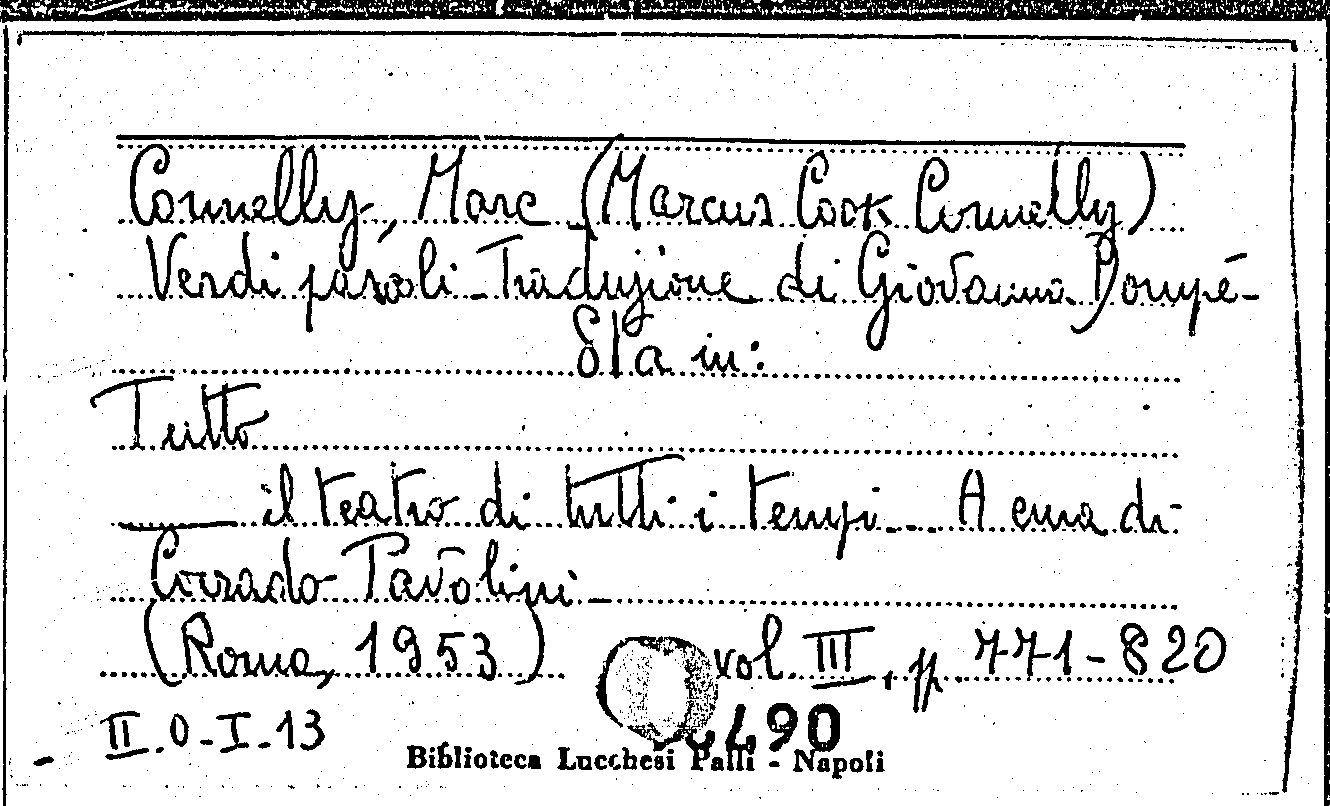 Connelly, Marc (Marcus Cook Connelly)
Verdi pascoli - Traduzione di Giovanna Pompé-
Sta in:
Tutto
il teatro di tutti i tempi - A cura di
Corrado Pavolini -
(Roma, 1953) vol. III, pp. 771-820
490
II.0-I-13
Biblioteca Lucchesi Palli - Napoli